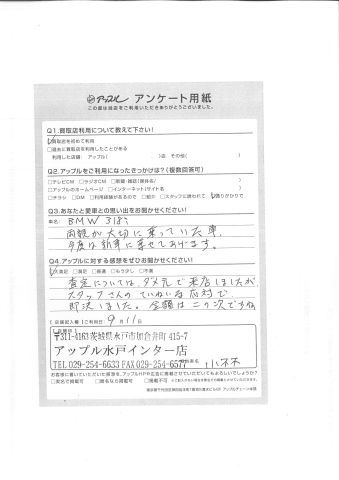 アップル アンケート用紙
この度は当店をご利用いただきありがとうございました。
Q1.買取店利用について教えて下さい!
☑買取店を初めて利用
□過去に買取店を利用したことがある
利用した店舗: アップル( )店 その他( )
Q2.アップルをご利用になったきっかけは?(複数回答可)
□テレビCM □ラジオCM □新聞・雑誌(媒体名/ )
□アップルのホームページ □インターネット(サイト名 )
□チラシ □DM □利用店舗があるので □紹介 □スタッフに誘われて ☑通りがかりで
Q3.あなたと愛車との思い出をお聞かせください!
車名: BMW 318i
両親が大切に乗っていた車。
今度は新車に乗せてあげます。
Q4.アップルに対する感想をぜひお聞かせください!
☑大満足 □満足 □普通 □もう少し □不満
査定については、ダメ元で来店しましたが
スタッフさんのていねいな応対で
即決しました。金額は二の次ですね
【店頭記入欄】ご利用日: 9月11日
〒311-4163茨城県水戸市加倉井町415-7
アップル水戸インター店
TEL029-254-6633 FAX029-254-6577
お客様に書いていただいた感想を、アップルHPや広告に掲載させていただいてもよろしいでしょうか?
□実名で掲載可 □匿名なら掲載可 □掲載不可